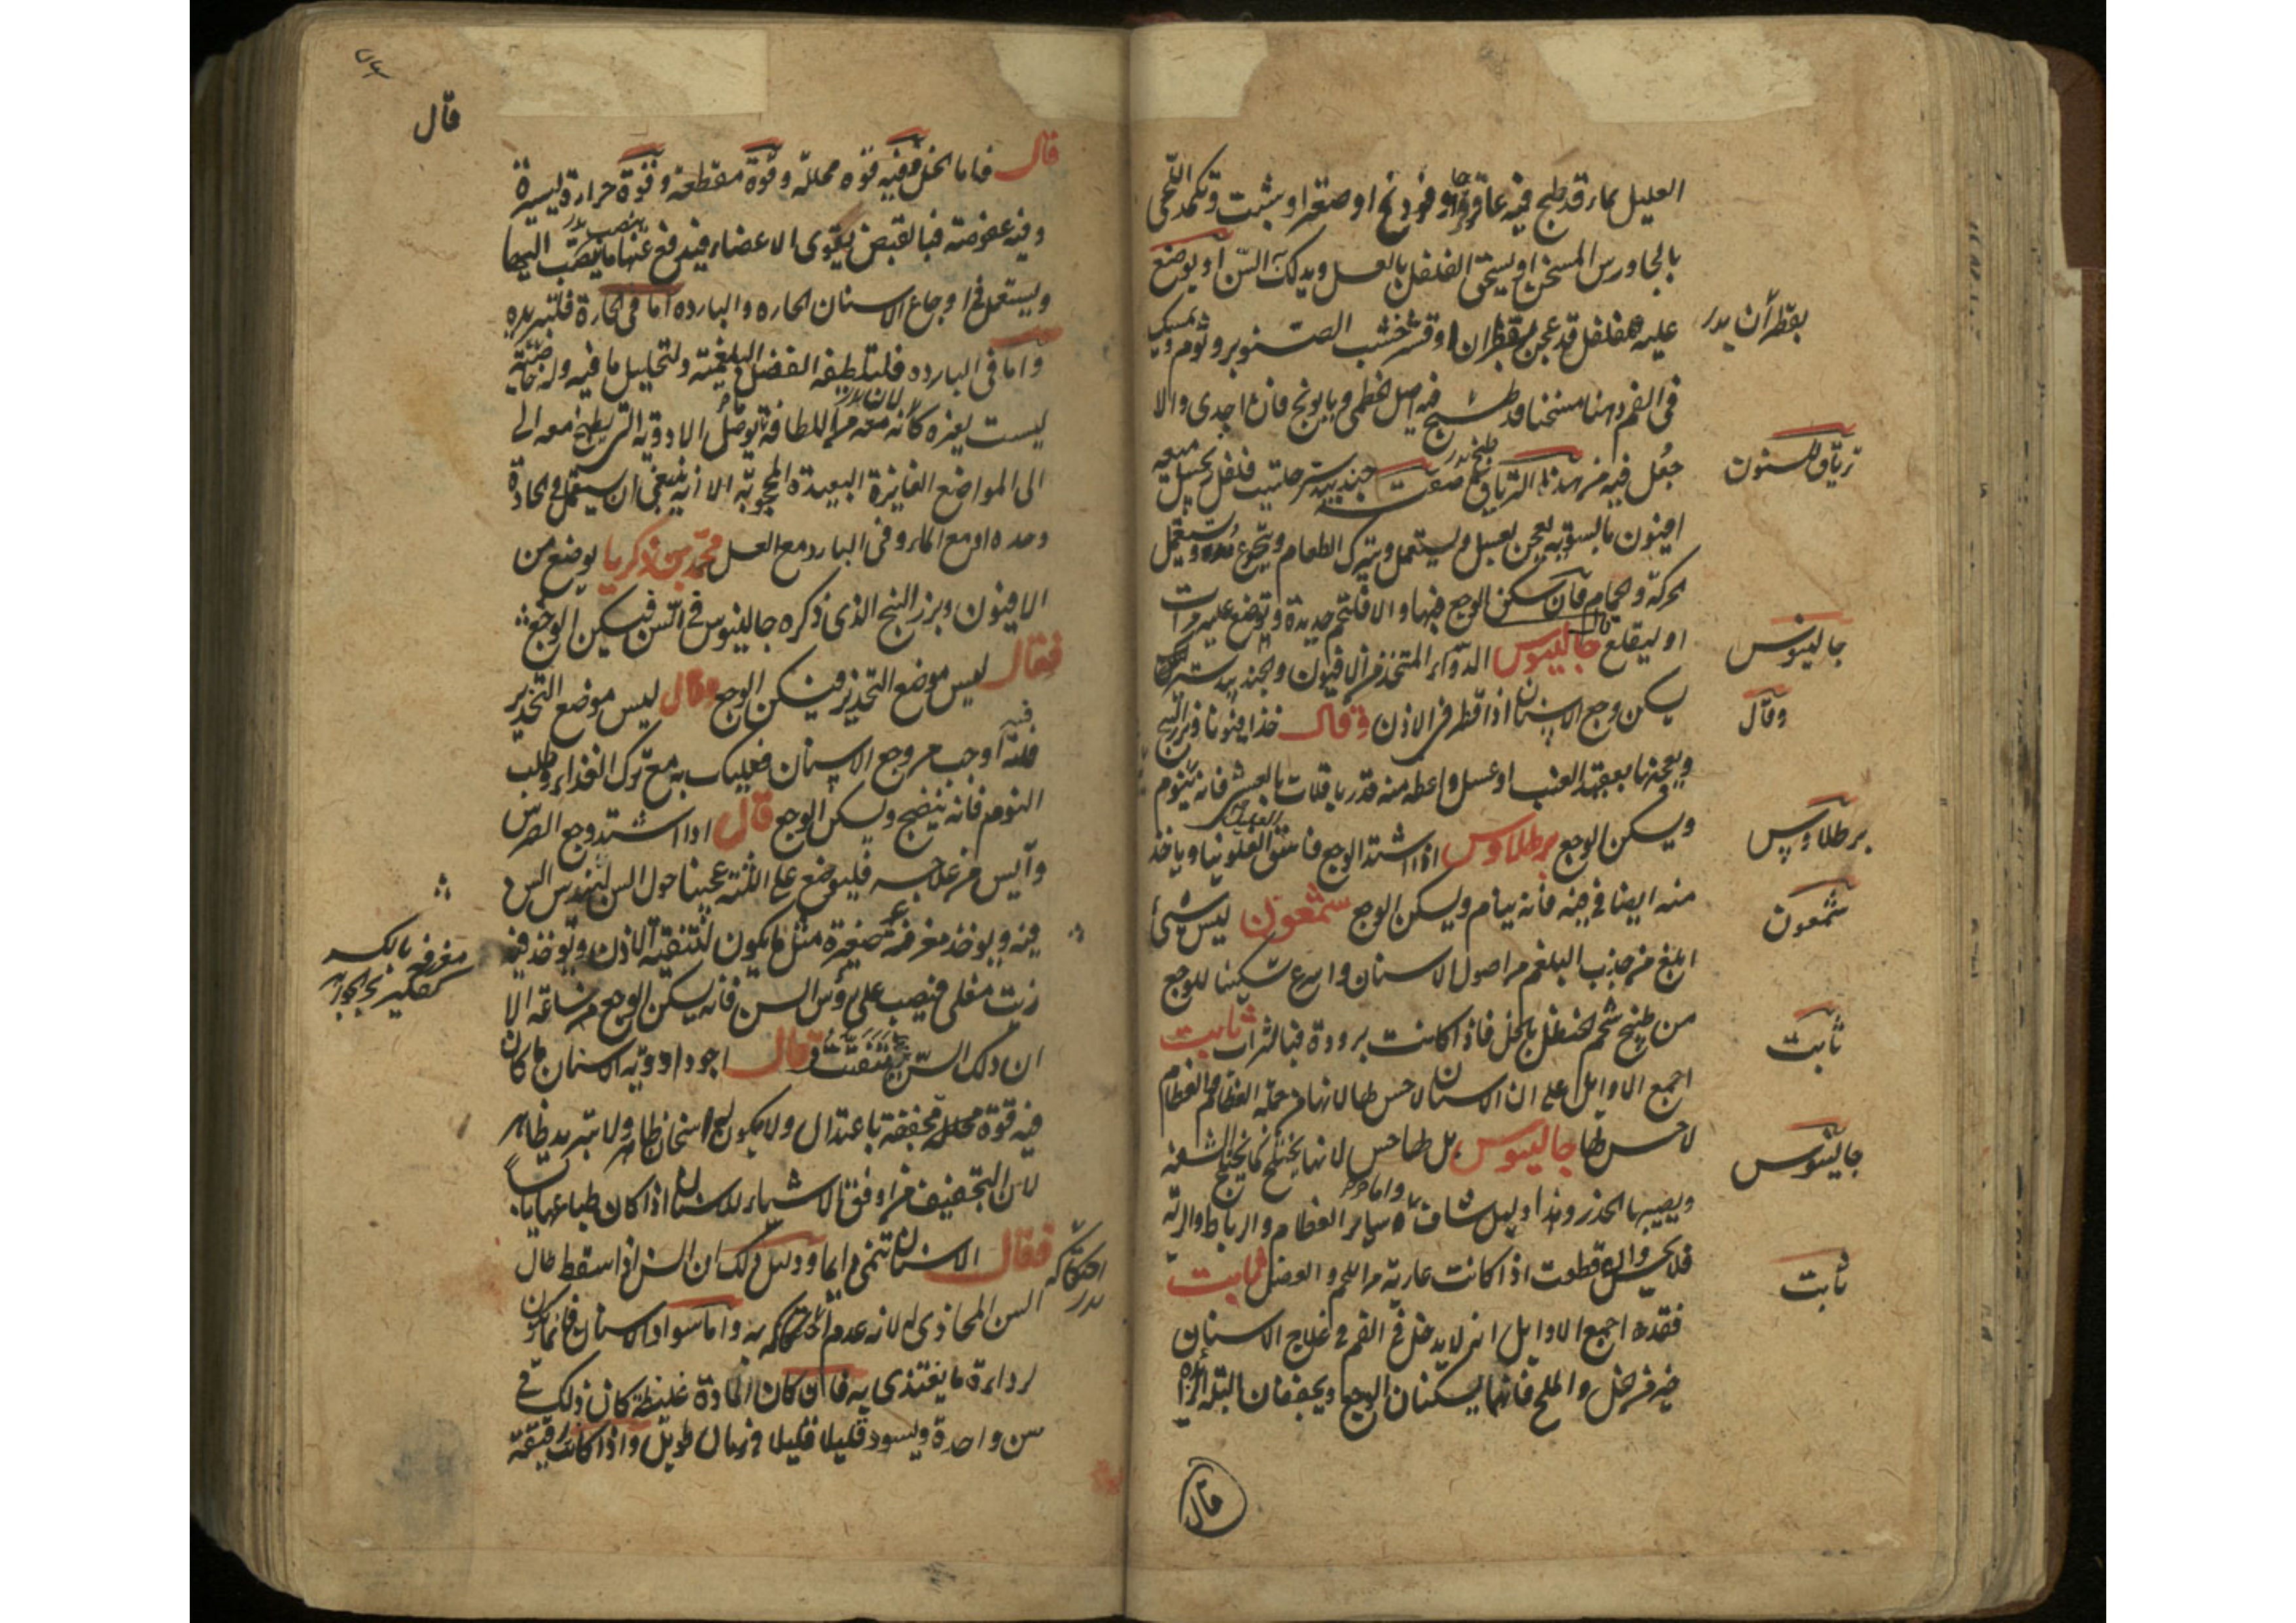 العليل بماء قد طبخ فيه عاقرقرحا او فودنج او صعتر او شبث وتكمد اللحى
بالجاورس المسخن او يسحق الفلفل بالعسل ويدلك به السن او يوضع
عليه فلفل قد عجن بقطران او قشر خشب الصنوبر وثوم ويمسك
بقطران بدر
في الفم دهنا مسخنا قد طبخ فيه اصل الخطمي وبابونج فان اجدى والا
جعل فيه من هذا الترياق صفته جندبيدستر حلتيت فلفل زنجبيل ميعه
ترياق للسنون
افيون بالسويه يعجن بعسل ويستعمل ويترك الطعام ويستعمل
الحركة والحمام فان سكن الوجع فبها والا فلتحم حديدة وتوضع عليه مرات
او ليقلع جالينوس الدواء المتخذ من الافيون والجندبيدستر
جالينوس
يسكن وجع الاسنان اذا قطر في الاذن وقال خذ افيونا وبزر البنج
وقال
ويعجنها بعقيد العنب او عسل واعطه منه قدر باقلات بالعشي فانه ينوم
ويسكن الوجع برطلاوس اذا اشتد الوجع فاسق الفلونيا وياخذ
برطلاوس
منه ايضا في فيه فانه ينام ويسكن الوجع شمعون ليس شيء
شمعون
ابلغ من جذب البلغم من اصول الاسنان واسرع تسكينا للوجع
من طبيخ شحم الحنظل بالخل فاذا كانت برودة فبالشراب ثابت
ثابت
اجمع الاوايل على ان الاسنان لا حس لها لانها من جملة العظام والعظام
لا حس لها جالينوس بل لها حس لانها تختلج كما تختلج الشفه
جالينوس
ويصيبها الخدر وهذا دليل شاف واما ساير العظام والرباط والرئة
فلا يحس قطعت اذا كانت عارية من اللحم والعضل ثابت
ثابت
فقده اجمع الاوايل انه لا يدخل في الفم في علاج الاسنان
خير من خل والملح فانهما يسكنان الوجع ويجففان البلة الزايدة
قال
قال
قال فاما الخل ففيه قوة محللة وقوة مقطعة وقوة حرارة يسيرة
وفيه عفوصة فبالقبض يقوى الاعضاء فيندفع عنها ما ينصب اليها
ويستعمل في اوجاع الاسنان الحاره والبارده اما في الحارة فلتبريده
واما في البارده فلتلطيفه الفضل البلغمية ولتحليل ما فيه وله خاصية
ليست لغيره كانه معه من اللطافة يوصل الادوية التي يطبخ معه الى
الى المواضع الغايرة البعيدة المحجوبة الا انه ينبغي ان يستعمل في الحادة
وحده او مع الماء وفي البارد مع العسل محمد بن زكريا يوضع من
الافيون وبزر البنج الذي ذكره جالينوس في السن فيسكن الوجع
فقال ليس موضع التخدير فيسكن الوجع وقال ليس موضع التخدير
فيه اوجب من وجع الاسنان فعليك به مع ترك الغذاء وطلب
النوم فانه ينضج ويسكن الوجع قال اذا اشتد وجع الضرس
وآيس من علاجه فليوضع على اللثة عجينا حول السن
فيه ويوخذ مغرفة صغيرة مثل ما يكون لتنقية الاذن ويوخذ فيه
زيت مغلى فيصب على رؤس السن فانه يسكن الوجع من ساعته الا
ان ذلك السن يتفتت وقال اجود ادوية الاسنان ما كان
فيه قوة محللة مجففة باعتدال ولا يكون له اسخان ظاهر ولا تبريد ظاهر
لان التجفيف من اوفق الاشياء للاسنان اذا كان طباعها يابسا
فقال الاسنان تنمى دايما ودليل ذلك ان السن اذا سقط طال
السن المحاذي له لانه عدم احتكاكه به واما سواد الاسنان فانما يكون
احتكاكه بدر
لرداءة ما يغتذى به فان كان المادة غليظة كان ذلك في
سن واحدة ويسود قليلا قليلا في زمان طويل واذا كانت رقيقة